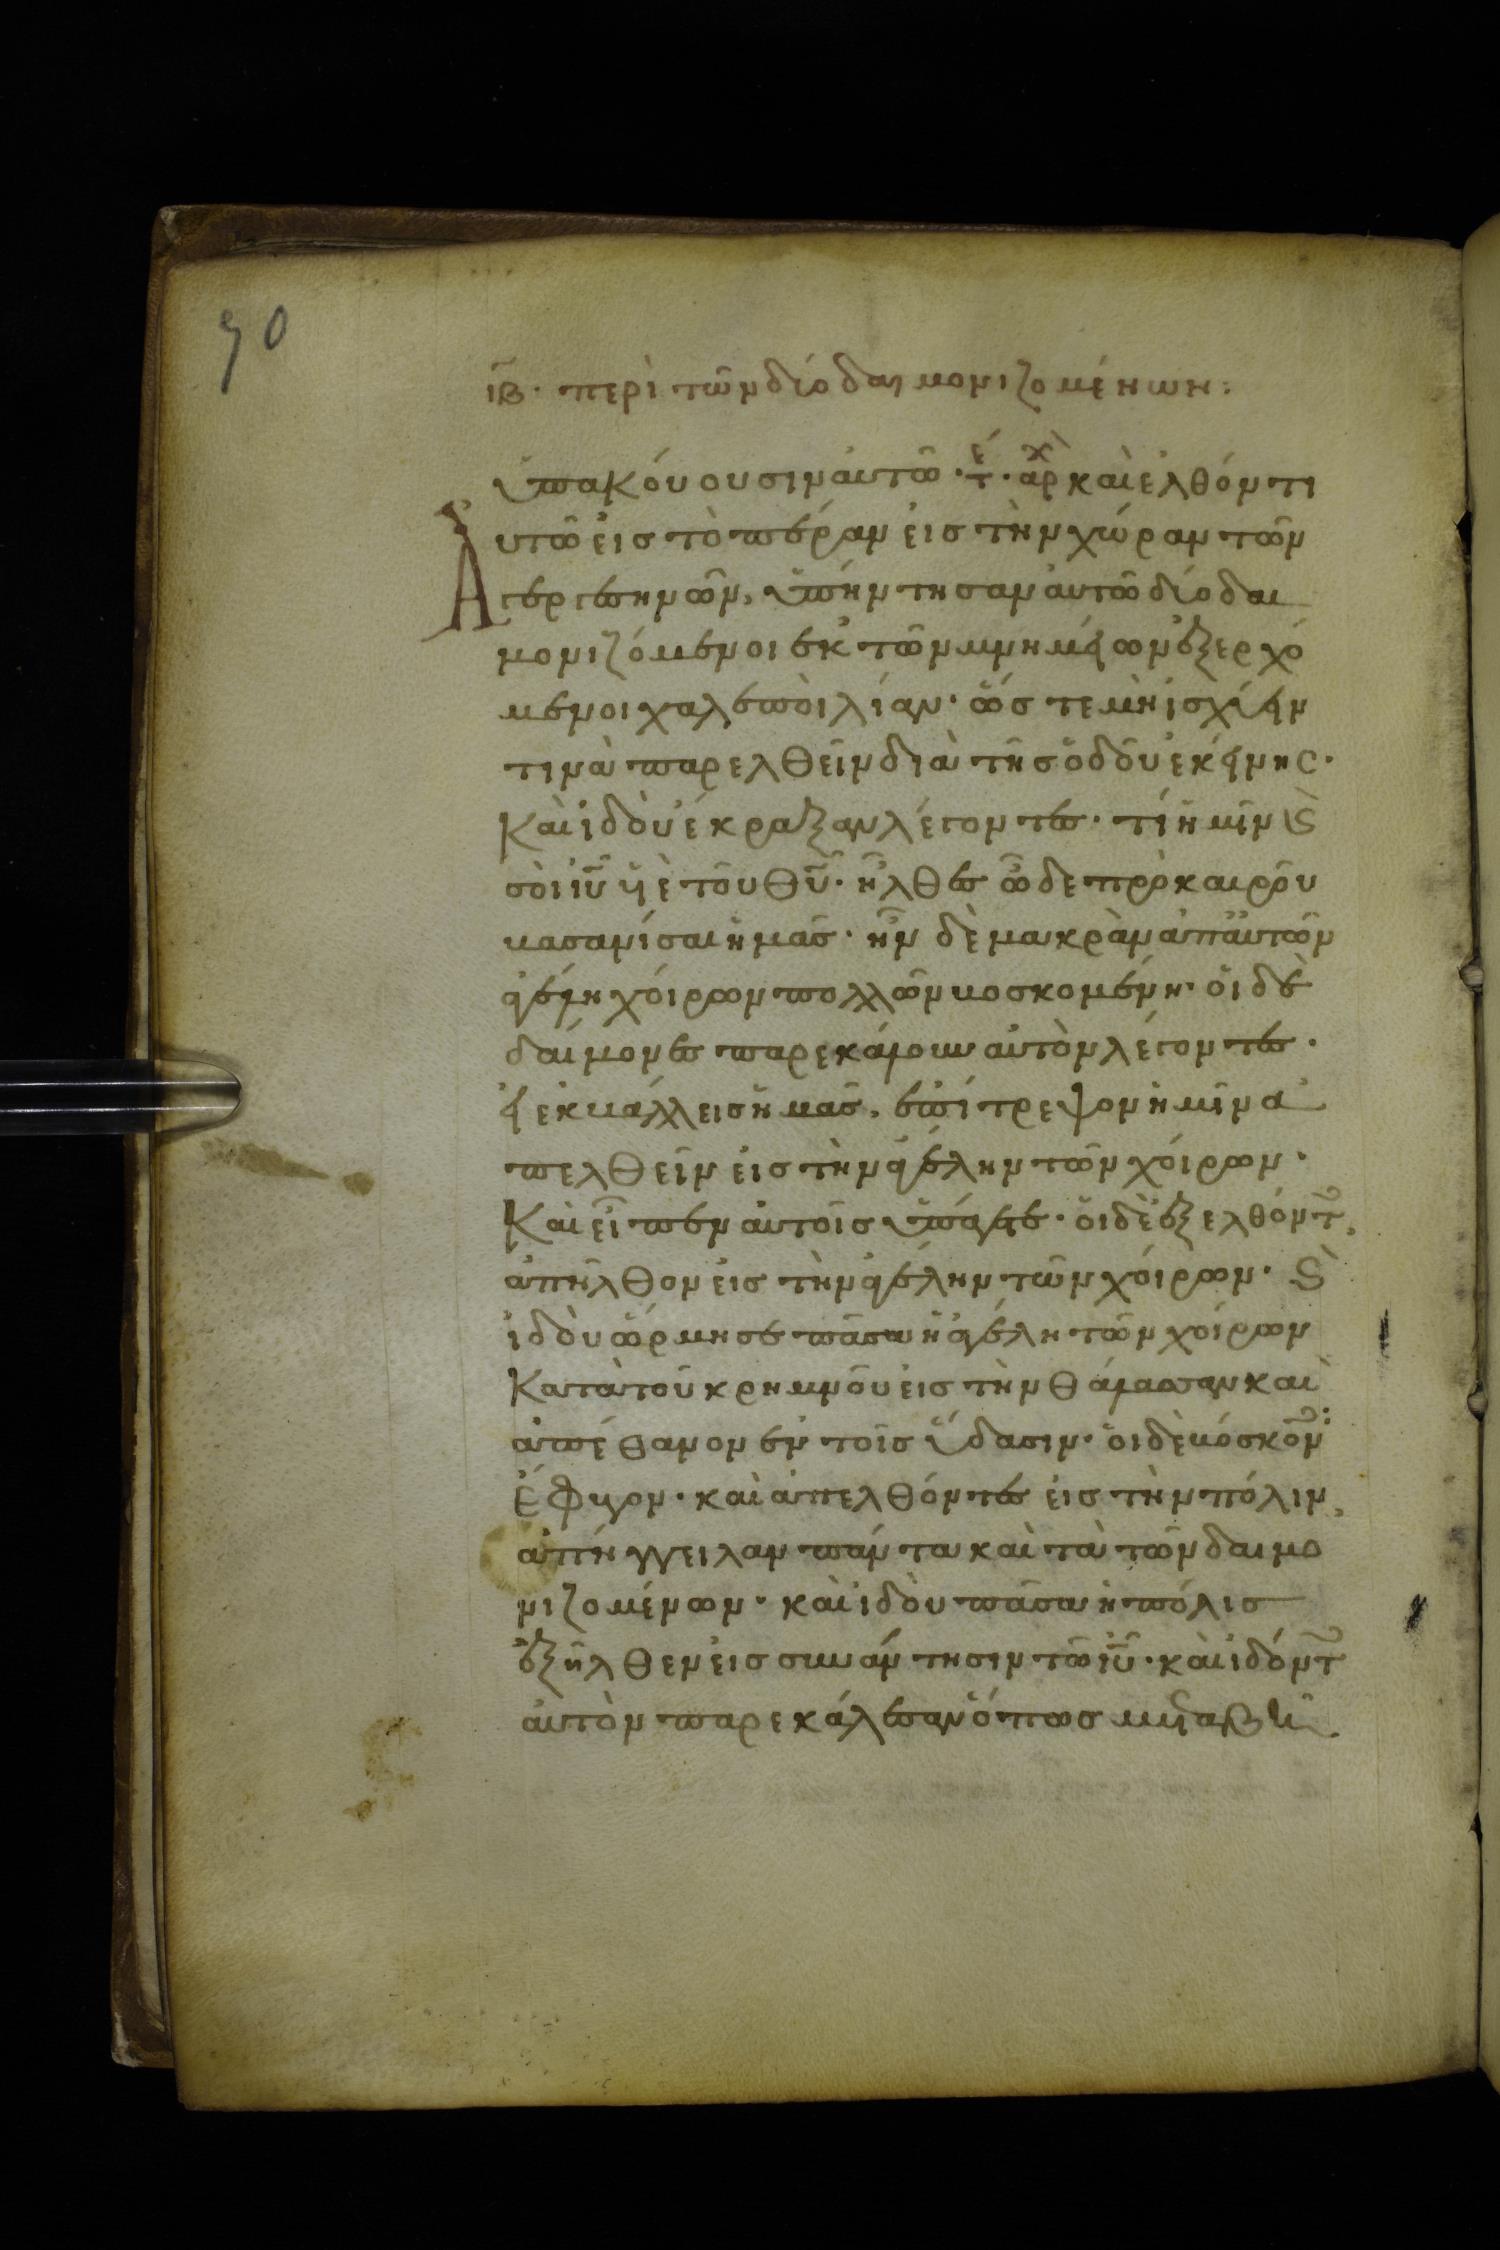 90
ιβ· περὶ τῶν δύο δαιμονιζομένων:
ὑπακούουσιν αὐτῶ· τέ· ἀρχ καὶ ἐλθόντι
Αυτῶ εἰς τὸ πέραν εἰς τὴν χώραν τῶν
γεργεσηνῶν, ὑπήντησαν αὐτῶ δύο δαι
μονιζόμενοι ἐκ τῶν μνημείων ἐξερχό
μενοι χαλεποὶ λίαν· ὥστε μὴ ἰσχύειν
τινὰ παρελθεῖν διὰ τῆς ὁδοῦ ἐκείνης·
Καὶ ἰδοὺ ἔκραξαν λέγοντες· τί ἡμῖν ϗ
σοὶ ιυ υἱὲ τοῦ θυ· ἦλθες ὧδε πρὸ καιροῦ
βασανίσαι ἡμᾶς· ἦν δὲ μακρὰν ἀπ αὐτῶν
ἀγέλη χοίρων πολλῶν βοσκομένη· οἱ δὲ
δαίμονες παρεκάλουν αὐτὸν λέγοντες·
εἰ ἐκβάλλεις ἡμᾶς, ἐπίτρεψον ἡμῖν ἀ
πελθεῖν εἰς τὴν ἀγέλην τῶν χοίρων·
Καὶ εἶπεν αὐτοῖς ὑπάγετε· οἱ δὲ ἐξελθόντ
ἀπῆλθον εἰς τὴν ἀγέλην τῶν χοίρων· ϗ
ἰδοὺ ὥρμησε πᾶσα ἡ ἀγέλη τῶν χοίρων
Κατὰ τοῦ κρημνοῦ εἰς τὴν θάλασσαν καὶ
ἀπέθανον ἐν τοῖς ὕδασιν· οἱ δὲ βόσκον
ἔφυγον· καὶ ἀπελθόντες εἰς τὴν πόλιν,
ἀπήγγειλαν πάντα καὶ τὰ τῶν δαιμο
νιζομένων· καὶ ἰδοὺ πᾶσα ἡ πόλις
ἐξῆλθεν εἰς συνάντησιν τῶ ιυ· καὶ ἰδόντ
αὐτὸν παρεκάλεσαν ὅπως μεταβῆ